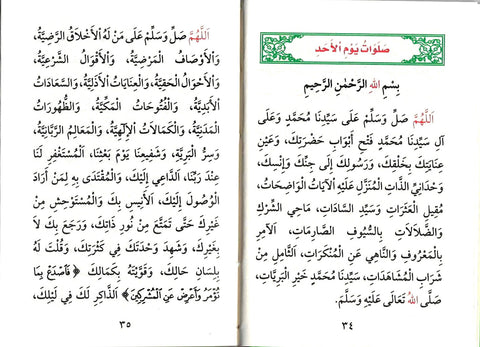 صَلَوَاتُ يَوْمِ الْأَحَدِ
بِسْمِ اللهِ الرَّحْمٰنِ الرَّحِيمِ
اَللّٰهُمَّ صَلِّ وَسَلِّمْ عَلَى سَيِّدِنَا مُحَمَّدٍ وَعَلَى
آلِ سَيِّدِنَا مُحَمَّدٍ فَتْحِ أَبْوَابِ حَضْرَتِكَ، وَعَيْنِ
عِنَايَتِكَ بِخَلْقِكَ، وَرَسُولِكَ إِلَى جِنِّكَ وَإِنْسِكَ،
وَحْدَانِيِّ الذَّاتِ الْمُنَزَّلِ عَلَيْهِ اْلآيَاتُ الْوَاضِحَاتُ،
مُقِيلِ الْعَثَرَاتِ وَسَيِّدِ السَّادَاتِ، مَاحِي الشِّرْكِ
وَالضَّلَالَاتِ بِالسُّيُوفِ الصَّارِمَاتِ، اَلْآمِرِ
بِالْمَعْرُوفِ وَالنَّاهِي عَنِ الْمُنْكَرَاتِ، الثَّامِلِ مِنْ
شَرَابِ الْمُشَاهَدَاتِ، سَيِّدِنَا مُحَمَّدٍ خَيْرِ الْبَرِيَّاتِ،
صَلَّى اللهُ تَعَالَى عَلَيْهِ وَسَلَّمَ.
٣٤
اَللّٰهُمَّ صَلِّ وَسَلِّمْ عَلَى مَنْ لَهُ الْأَخْلَاقُ الرَّضِيَّةُ،
وَالْأَوْصَافُ الْمَرْضِيَّةُ، وَالْأَقْوَالُ الشَّرْعِيَّةُ،
وَالْأَحْوَالُ الْحَقِيَّةُ، وَالْعِنَايَاتُ الْأَزَلِيَّةُ، وَالسَّعَادَاتُ
الْأَبَدِيَّةُ، وَالْفُتُوحَاتُ الْمَكِّيَّةُ، وَالظُّهُورَاتُ
الْمَدَنِيَّةُ، وَالْكَمَالَاتُ الْإِلٰهِيَّةُ، وَالْمَعَالِمُ الرَّبَّانِيَّةُ،
وَسِرُّ الْبَرِيَّةِ، وَشَفِيعُنَا يَوْمَ بَعْثِنَا، اَلْمُسْتَغْفِرُ لَنَا
عِنْدَ رَبِّنَا، اَلدَّاعِي إِلَيْكَ، وَالْمُقْتَدَى بِهِ لِمَنْ أَرَادَ
الْوُصُولَ إِلَيْكَ، اَلْأَنِيسِ بِكَ وَالْمُسْتَوْحِشِ مِنْ
غَيْرِكَ حَتَّى تَمَتَّعَ مِنْ نُورِ ذَاتِكَ، وَرَجَعَ بِكَ لَا
بِغَيْرِكَ، وَشَهِدَ وَحْدَتَكَ فِي كَثْرَتِكَ، وَقُلْتَ لَهُ
بِلِسَانِ حَالِكَ، وَقَوَّيْتَهُ بِكَمَالِكَ ﴿فَاصْدَعْ بِمَا
تُؤْمَرُ وَأَعْرِضْ عَنِ الْمُشْرِكِينَ﴾ اَلذَّاكِرِ لَكَ فِي لَيْلِكَ،
٣٥